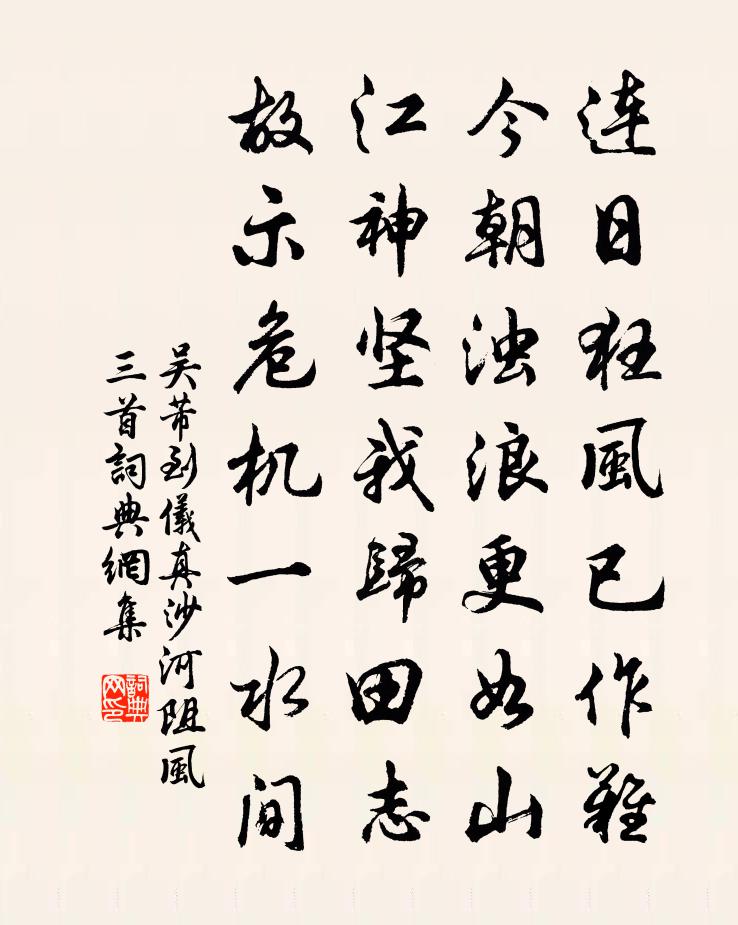 連日狂風已作難
今朝浊浪更如山
江神坚我歸田志
故示危机一水間
吴芾到儀真沙河阻風
三首詞典網集
詞典
网印